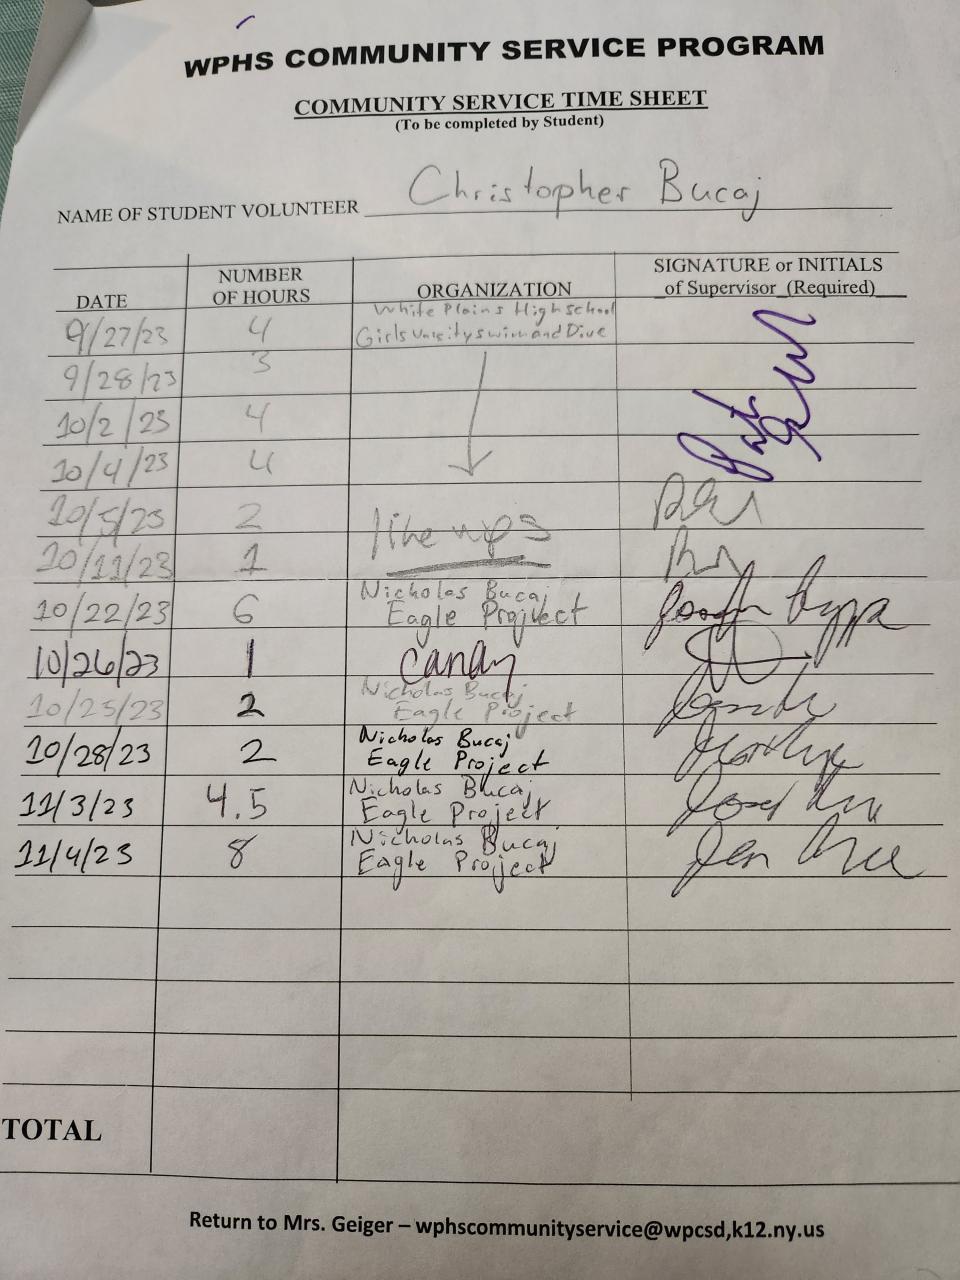 WPHS COMMUNITY SERVICE PROGRAM
COMMUNITY SERVICE TIME SHEET
(To be completed by Student)
NAME OF STUDENT VOLUNTEER Christopher Bucaj
DATE NUMBER OF HOURS ORGANIZATION SIGNATURE or INITIALS of Supervisor (Required)
9/27/23 4 White Plains High school Girls Varsity swim and Dive
9/28/23 3
10/2/23 4
10/4/23 4
10/5/23 2
10/11/23 1
10/22/23 6 Nicholas Bucaj Eagle Project
10/26/23 1 Canday
10/25/23 2 Nicholas Bucaj Eagle Project
10/28/23 2 Nicholas Bucaj Eagle Project
11/3/23 4.5 Nicholas Bucaj Eagle Project
11/4/23 8 Nicholas Bucaj Eagle Project
TOTAL
Return to Mrs. Geiger – wphscommunityservice@wpcsd,k12.ny.us